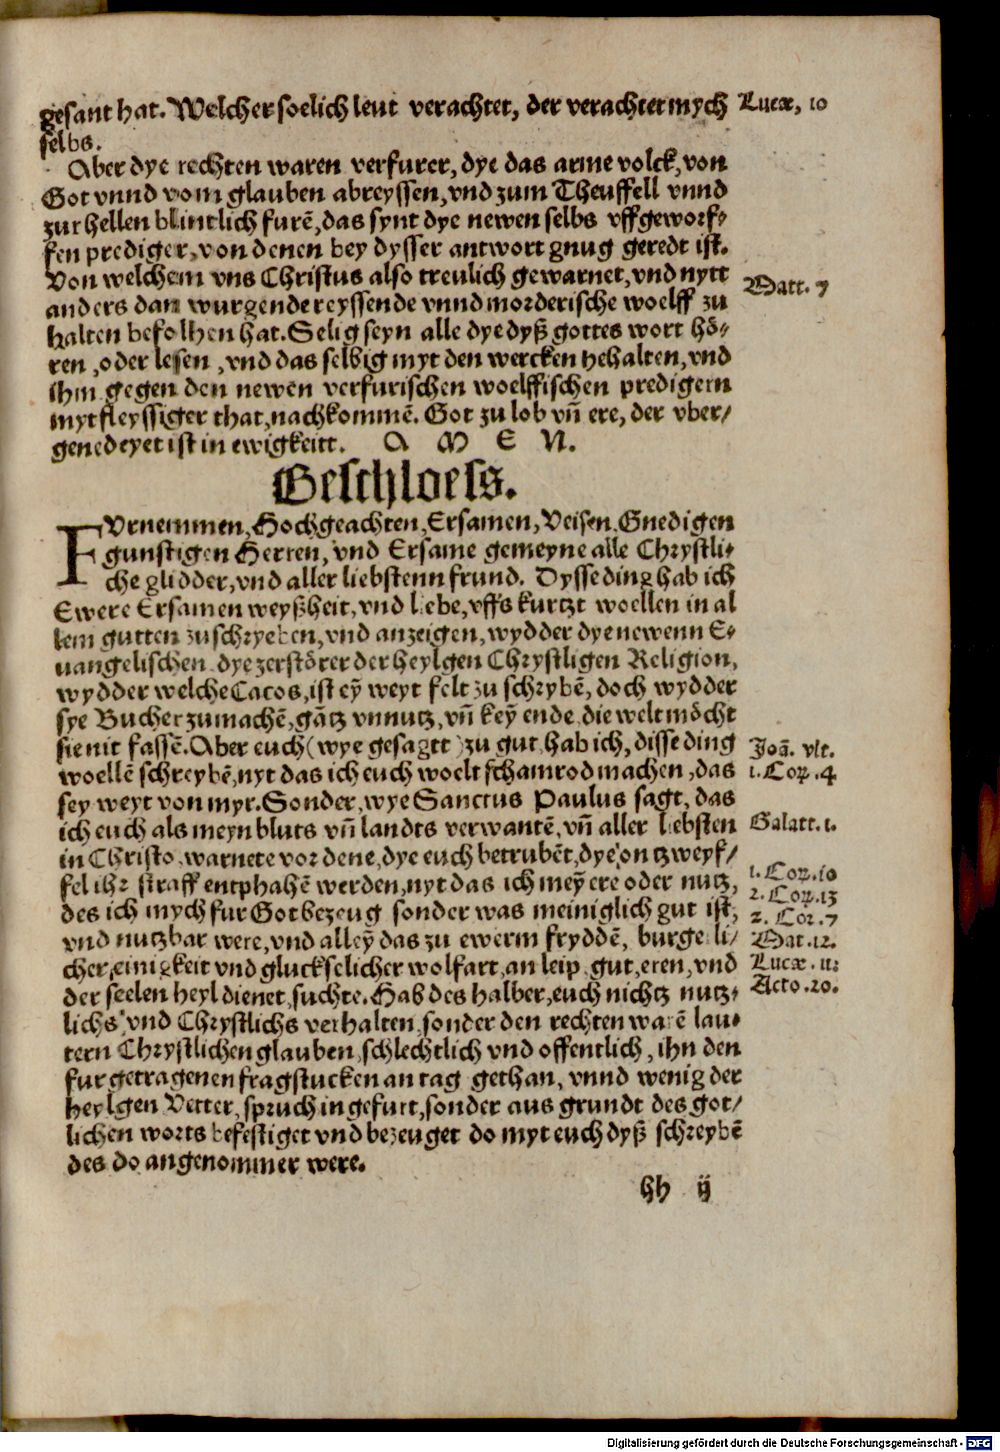 gesant hat. Welcher soelich leut verachtet, der verachtet mych Lucæ, 10
selbs.
Aber dye rechten waren verfurer, dye das arme volck, von
Got vnnd vom glauben abreyssen, vnd zum Theuffell vnnd
zur hellen blintlich furē, das synt dye newen selbs vffgeworf-
fen prediger, von denen bey dysser antwort gnug geredt ist.
Von welchem vns Christus also treulich gewarnet, vnd nytt
anders dan wurgende reyssende vnnd morderische woelff zu Matt. 7
halten befolhen hat. Selig seyn alle dye dyß gottes wort hö-
ren, oder lesen, vnd das selbig myt den wercken hehalten, vnd
ihm gegen den newen verfurischen woelffischen predigern
myt fleyssiger that, nachkommē. Got zu lob vñ ere, der vber/
genedeyet ist in ewigkeitt. A M E N.
Geschloess.
FVrnemmen, Hochgeachten, Ersamen, Veisen, Gnedigen
gunstigen Herren, vnd Ersame gemeyne alle Chrystli-
che glidder, vnd aller liebstenn frund. Dysse ding hab ich
Ewere Ersamen weyßheit, vnd liebe, vffs kurtzt woellen in al
lem gutten zuschryeben, vnd anzeigen, wydder dye newenn E-
uangelischen dye zerstörer der heylgen Chrystligen Religion,
wydder welche Cacos, ist eȳ weyt felt zu schrybē, doch wydder
sye Bucher zumachē, gātz vnnutz, vñ keȳ ende, die welt möcht
sie nit fassē. Aber euch (wye gesagtt) zu gut hab ich, disse ding Joā. vlt.
woellē schreybē, nyt das ich euch woelt schamrod machen, das 1. Cor. 4
sey weyt von myr. Sonder, wye Sanctus Paulus sagt, das
ich euch als meyn bluts vñ landts verwantē, vñ aller liebsten Galatt. 1.
in Christo warnete vor dene, dye euch betrubēt, dye on tzweyf/
fel ihr straff entphahē werden, nyt das ich meȳ ere oder nutz, 1. Cor. 10
des ich mych fur Got bezeug sonder was meiniglich gut ist, 2. Cor. 13
2. Cor. 7
vnd nutzbar were, vnd alleȳ das zu ewerm fryddē, burgerli/ Mat. 12.
cher, einigkeit vnd gluckselicher wolfart, an leip, gut, eren, vnd Lucæ. 11:
der seelen heyl dienet, suchte. Hab des halber, euch nichtz nutz- Acto. 20.
lichs vnd Chrystlichs verhalten, sonder den rechten warē lau-
tern Chrystlichen glauben, schlechtlich vnd offentlich, ihn den
furgetragenen fragstucken an tag gethan, vnnd wenig der
heylgen Vetter, spruch in gefurt, sonder aus grundt des got/
lichen worts befestiget vnd bezeuget do myt euch dyß schreybē
des do angenommer were.
hh ij
Digitalisierung gefördert durch die Deutsche Forschungsgemeinschaft - DFG